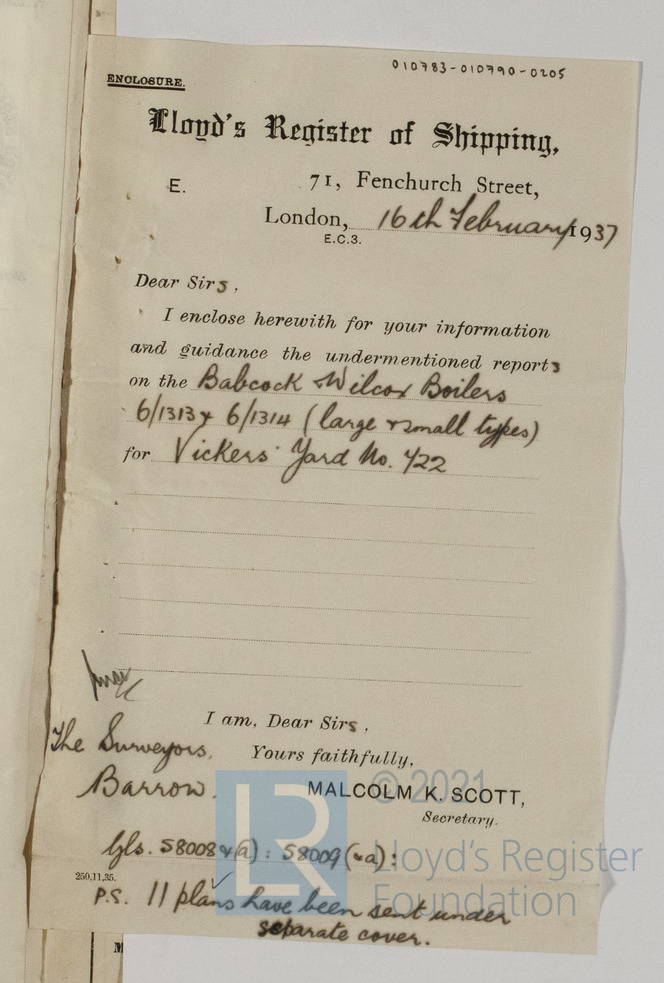 010783-010790-0205
ENCLOSURE.
Lloyd's Register of Shipping,
E.
71, Fenchurch Street,
London, 16th February 1937
E.C.3.
Dear Sirs,
I enclose herewith for your information
and guidance the undermentioned reports
on the Babcock Wilcox Boilers
6/1313 & 6/1314 (large & small types)
for Vickers' Yard No. 722
I am, Dear Sirs,
The Surveyors,
Yours faithfully,
Barrow.
MALCOLM K. SCOTT,
Secretary.
58008 & (a) : 58009 (& a) :
250,11,35.
P.S. 11 plans have been sent under
separate cover.
M
LR
© 2021
Lloyd's Register
Foundation